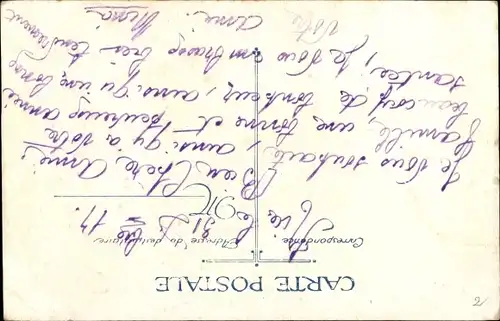 CARTE POSTALE
Correspondance
Adresse du destinataire
le 31
17.
Bien Chère Amie!
Je vous souhaite, ainsi qu'à votre
famille, une bonne et heureuse année
beaucoup de bonheur, ainsi qu'une bonne
santée, Je vous embrasse très tendrement
Votre
Amie!
2